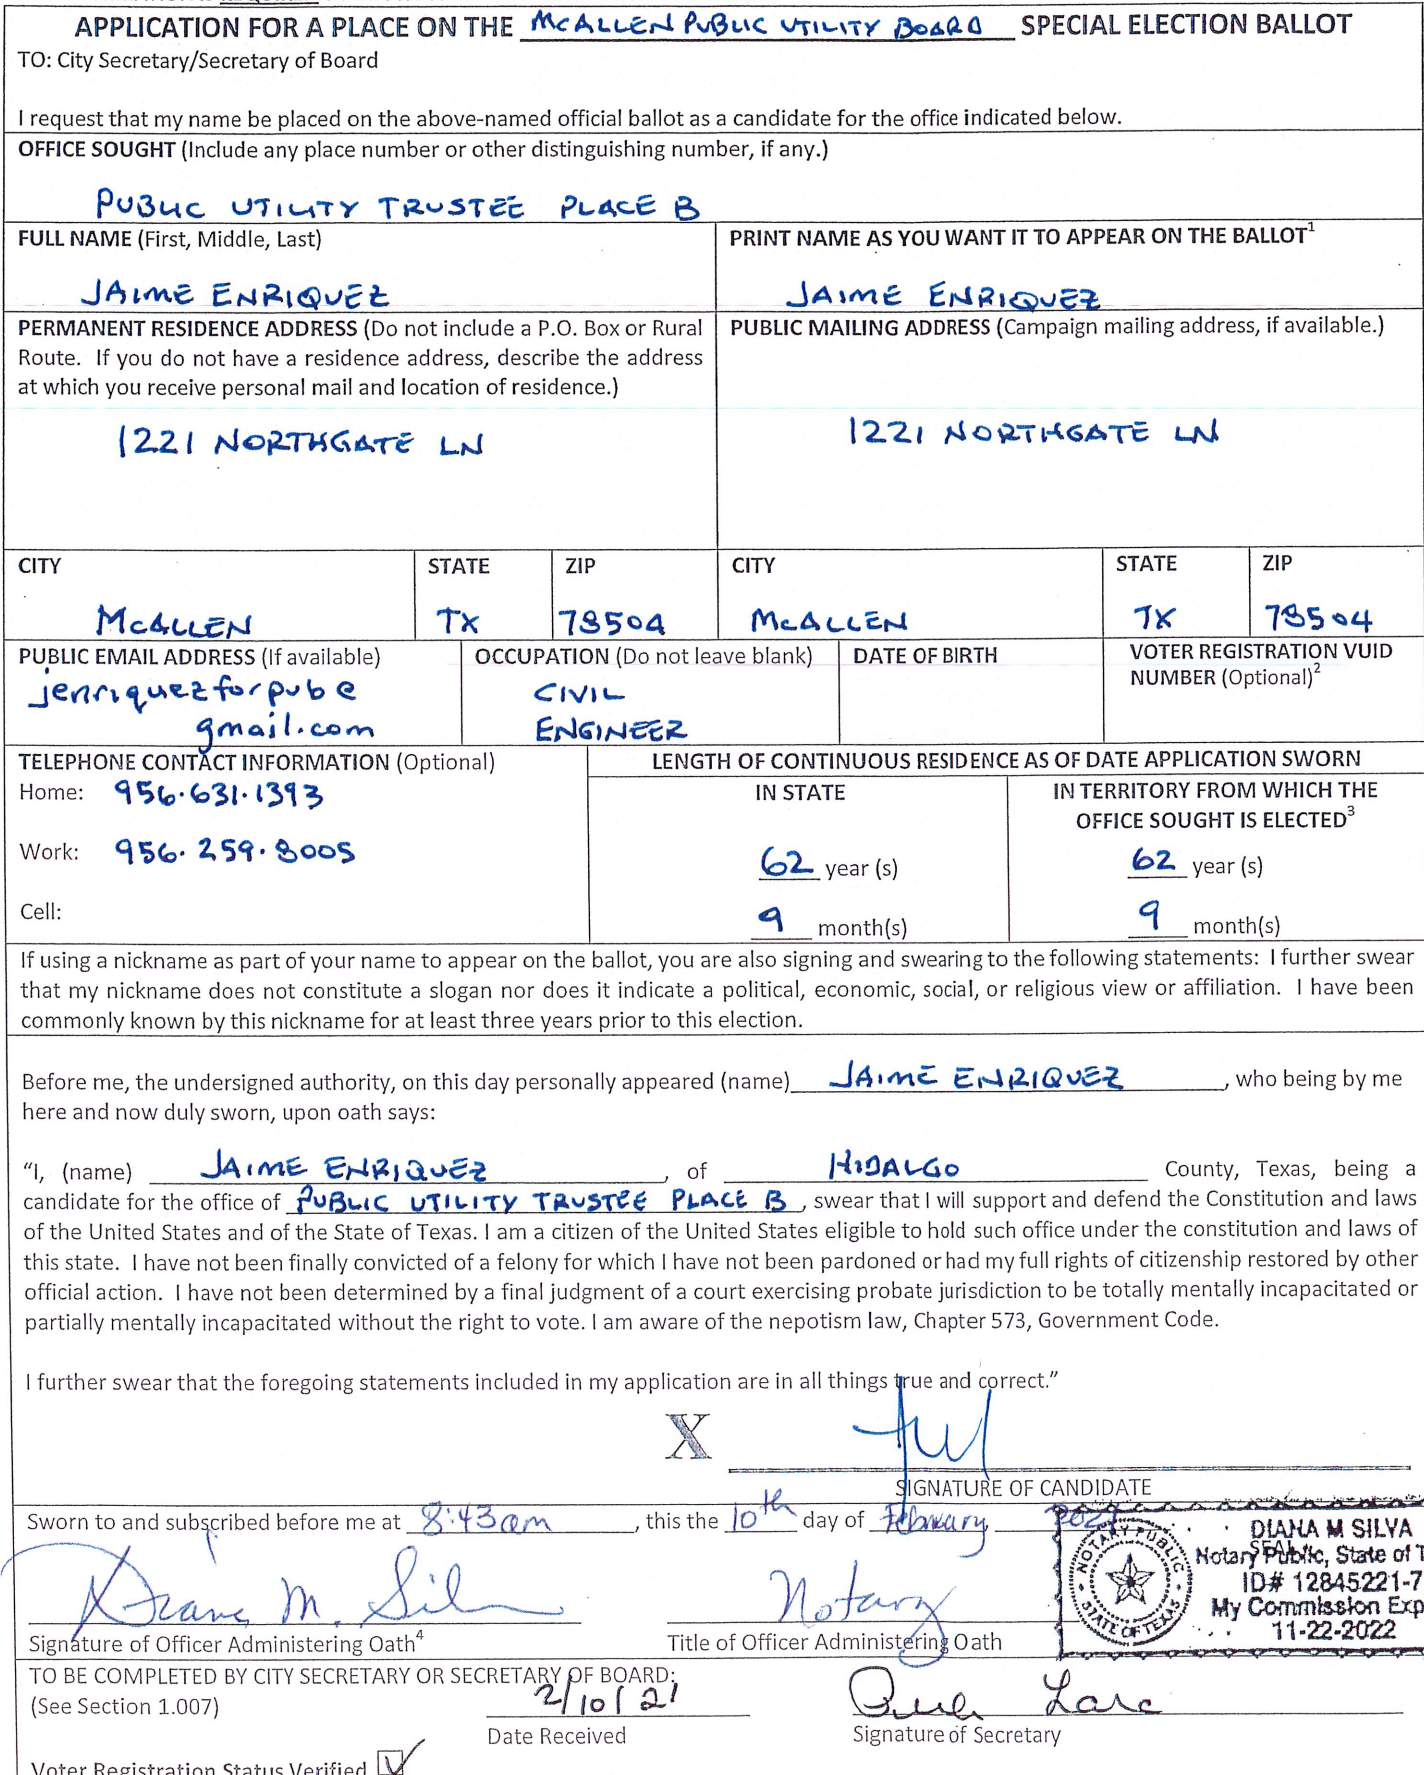 APPLICATION FOR A PLACE ON THE McALLEN PUBLIC UTILITY BOARD SPECIAL ELECTION BALLOT
TO: City Secretary/Secretary of Board
I request that my name be placed on the above-named official ballot as a candidate for the office indicated below.
OFFICE SOUGHT (Include any place number or other distinguishing number, if any.)
PUBLIC UTILITY TRUSTEE PLACE B
FULL NAME (First, Middle, Last)
JAIME ENRIQUEZ
PRINT NAME AS YOU WANT IT TO APPEAR ON THE BALLOT1
JAIME ENRIQUEZ
PERMANENT RESIDENCE ADDRESS (Do not include a P.O. Box or Rural
Route. If you do not have a residence address, describe the address
at which you receive personal mail and location of residence.)
1221 NORTHGATE LN
PUBLIC MAILING ADDRESS (Campaign mailing address, if available.)
1221 NORTHGATE LN
CITY STATE ZIP CITY STATE ZIP
McALLEN TX 78504 McALLEN TX 78504
PUBLIC EMAIL ADDRESS (If available)
jenriquezforpub@
gmail.com
OCCUPATION (Do not leave blank)
CIVIL
ENGINEER
DATE OF BIRTH
VOTER REGISTRATION VUID
NUMBER (Optional)2
TELEPHONE CONTACT INFORMATION (Optional)
Home: 956.631.1393
Work: 956.259.8005
Cell:
LENGTH OF CONTINUOUS RESIDENCE AS OF DATE APPLICATION SWORN
IN STATE
62 year (s)
9 month(s)
IN TERRITORY FROM WHICH THE
OFFICE SOUGHT IS ELECTED3
62 year (s)
9 month(s)
If using a nickname as part of your name to appear on the ballot, you are also signing and swearing to the following statements: I further swear
that my nickname does not constitute a slogan nor does it indicate a political, economic, social, or religious view or affiliation. I have been
commonly known by this nickname for at least three years prior to this election.
Before me, the undersigned authority, on this day personally appeared (name) JAIME ENRIQUEZ, who being by me
here and now duly sworn, upon oath says:
"I, (name) JAIME ENRIQUEZ, of HIDALGO County, Texas, being a
candidate for the office of PUBLIC UTILITY TRUSTEE PLACE B, swear that I will support and defend the Constitution and laws
of the United States and of the State of Texas. I am a citizen of the United States eligible to hold such office under the constitution and laws of
this state. I have not been finally convicted of a felony for which I have not been pardoned or had my full rights of citizenship restored by other
official action. I have not been determined by a final judgment of a court exercising probate jurisdiction to be totally mentally incapacitated or
partially mentally incapacitated without the right to vote. I am aware of the nepotism law, Chapter 573, Government Code.
I further swear that the foregoing statements included in my application are in all things true and correct."
X
SIGNATURE OF CANDIDATE
Sworn to and subscribed before me at 8:43am, this the 10th day of February 2021
Diana M. Silva
Signature of Officer Administering Oath4
Notary
Title of Officer Administering Oath
NOTARY PUBLIC
STATE OF TEXAS
DIANA M SILVA
SEAL
Notary Public, State of T
ID# 12845221-7
My Commission Exp
11-22-2022
TO BE COMPLETED BY CITY SECRETARY OR SECRETARY OF BOARD:
(See Section 1.007)
2/10/21
Date Received
Lara
Signature of Secretary
Voter Registration Status Verified